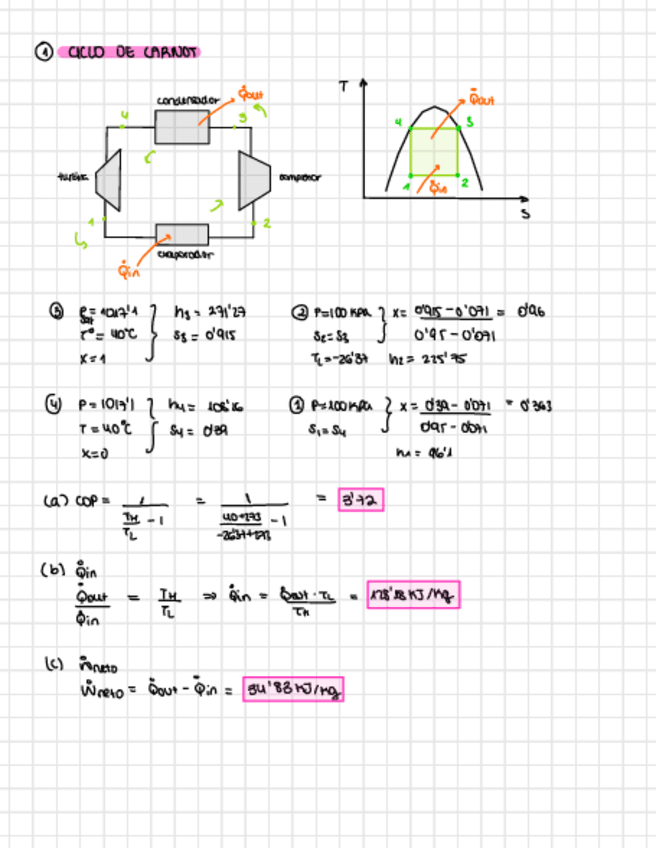 ① CICLO DE CARNOT
condensador
Q̇out
4
3
turbina
compresor
1
2
evaporador
Q̇in
T
Q̇out
4
3
1
Q̇in
2
S
③ Psat = 1017'1
T = 40°C
x = 1
h3 = 271'27
s3 = 0'915
② P = 100 KPa
s2 = s3
x = 0'915 - 0'071 / 0'95 - 0'071 = 0'96
TL = -26'37 h2 = 225'75
④ P = 1017'1
T = 40°C
x = 0
h4 =
s4 = 0'39
① P = 100 KPa
s1 = s4
x = 0'39 - 0'071 / 0'95 - 0'071 = 0'363
h1 = 96'1
(a) COP = 1 / TH/TL - 1 = 1 / 40+273/-26'37+273 - 1 = 3'72
(b) Q̇in
Q̇out / Q̇in = TH / TL ⇒ Q̇in = Q̇out · TL / TH = KJ/Kg
(c) Ẇneto
Ẇneto = Q̇out - Q̇in = 34'83 KJ/Kg